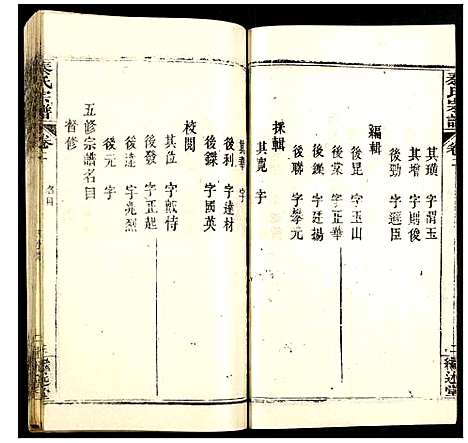 秦氏宗譜
卷
其璜 字謂玉
其增 字則俊
後勁 字遜臣
編輯
後昆 字玉山
後棠 字正華
後鏜 字廷揚
後聯 字擧元
採輯
其寬 字
其華 字
後利 字達材
後鏷 字國英
校閱
其位 字甑恃
後發 字正起
後達 字堯烈
後元 字
五修宗譜名目
督修
秦氏宗譜
卷
名目
二
繼述堂